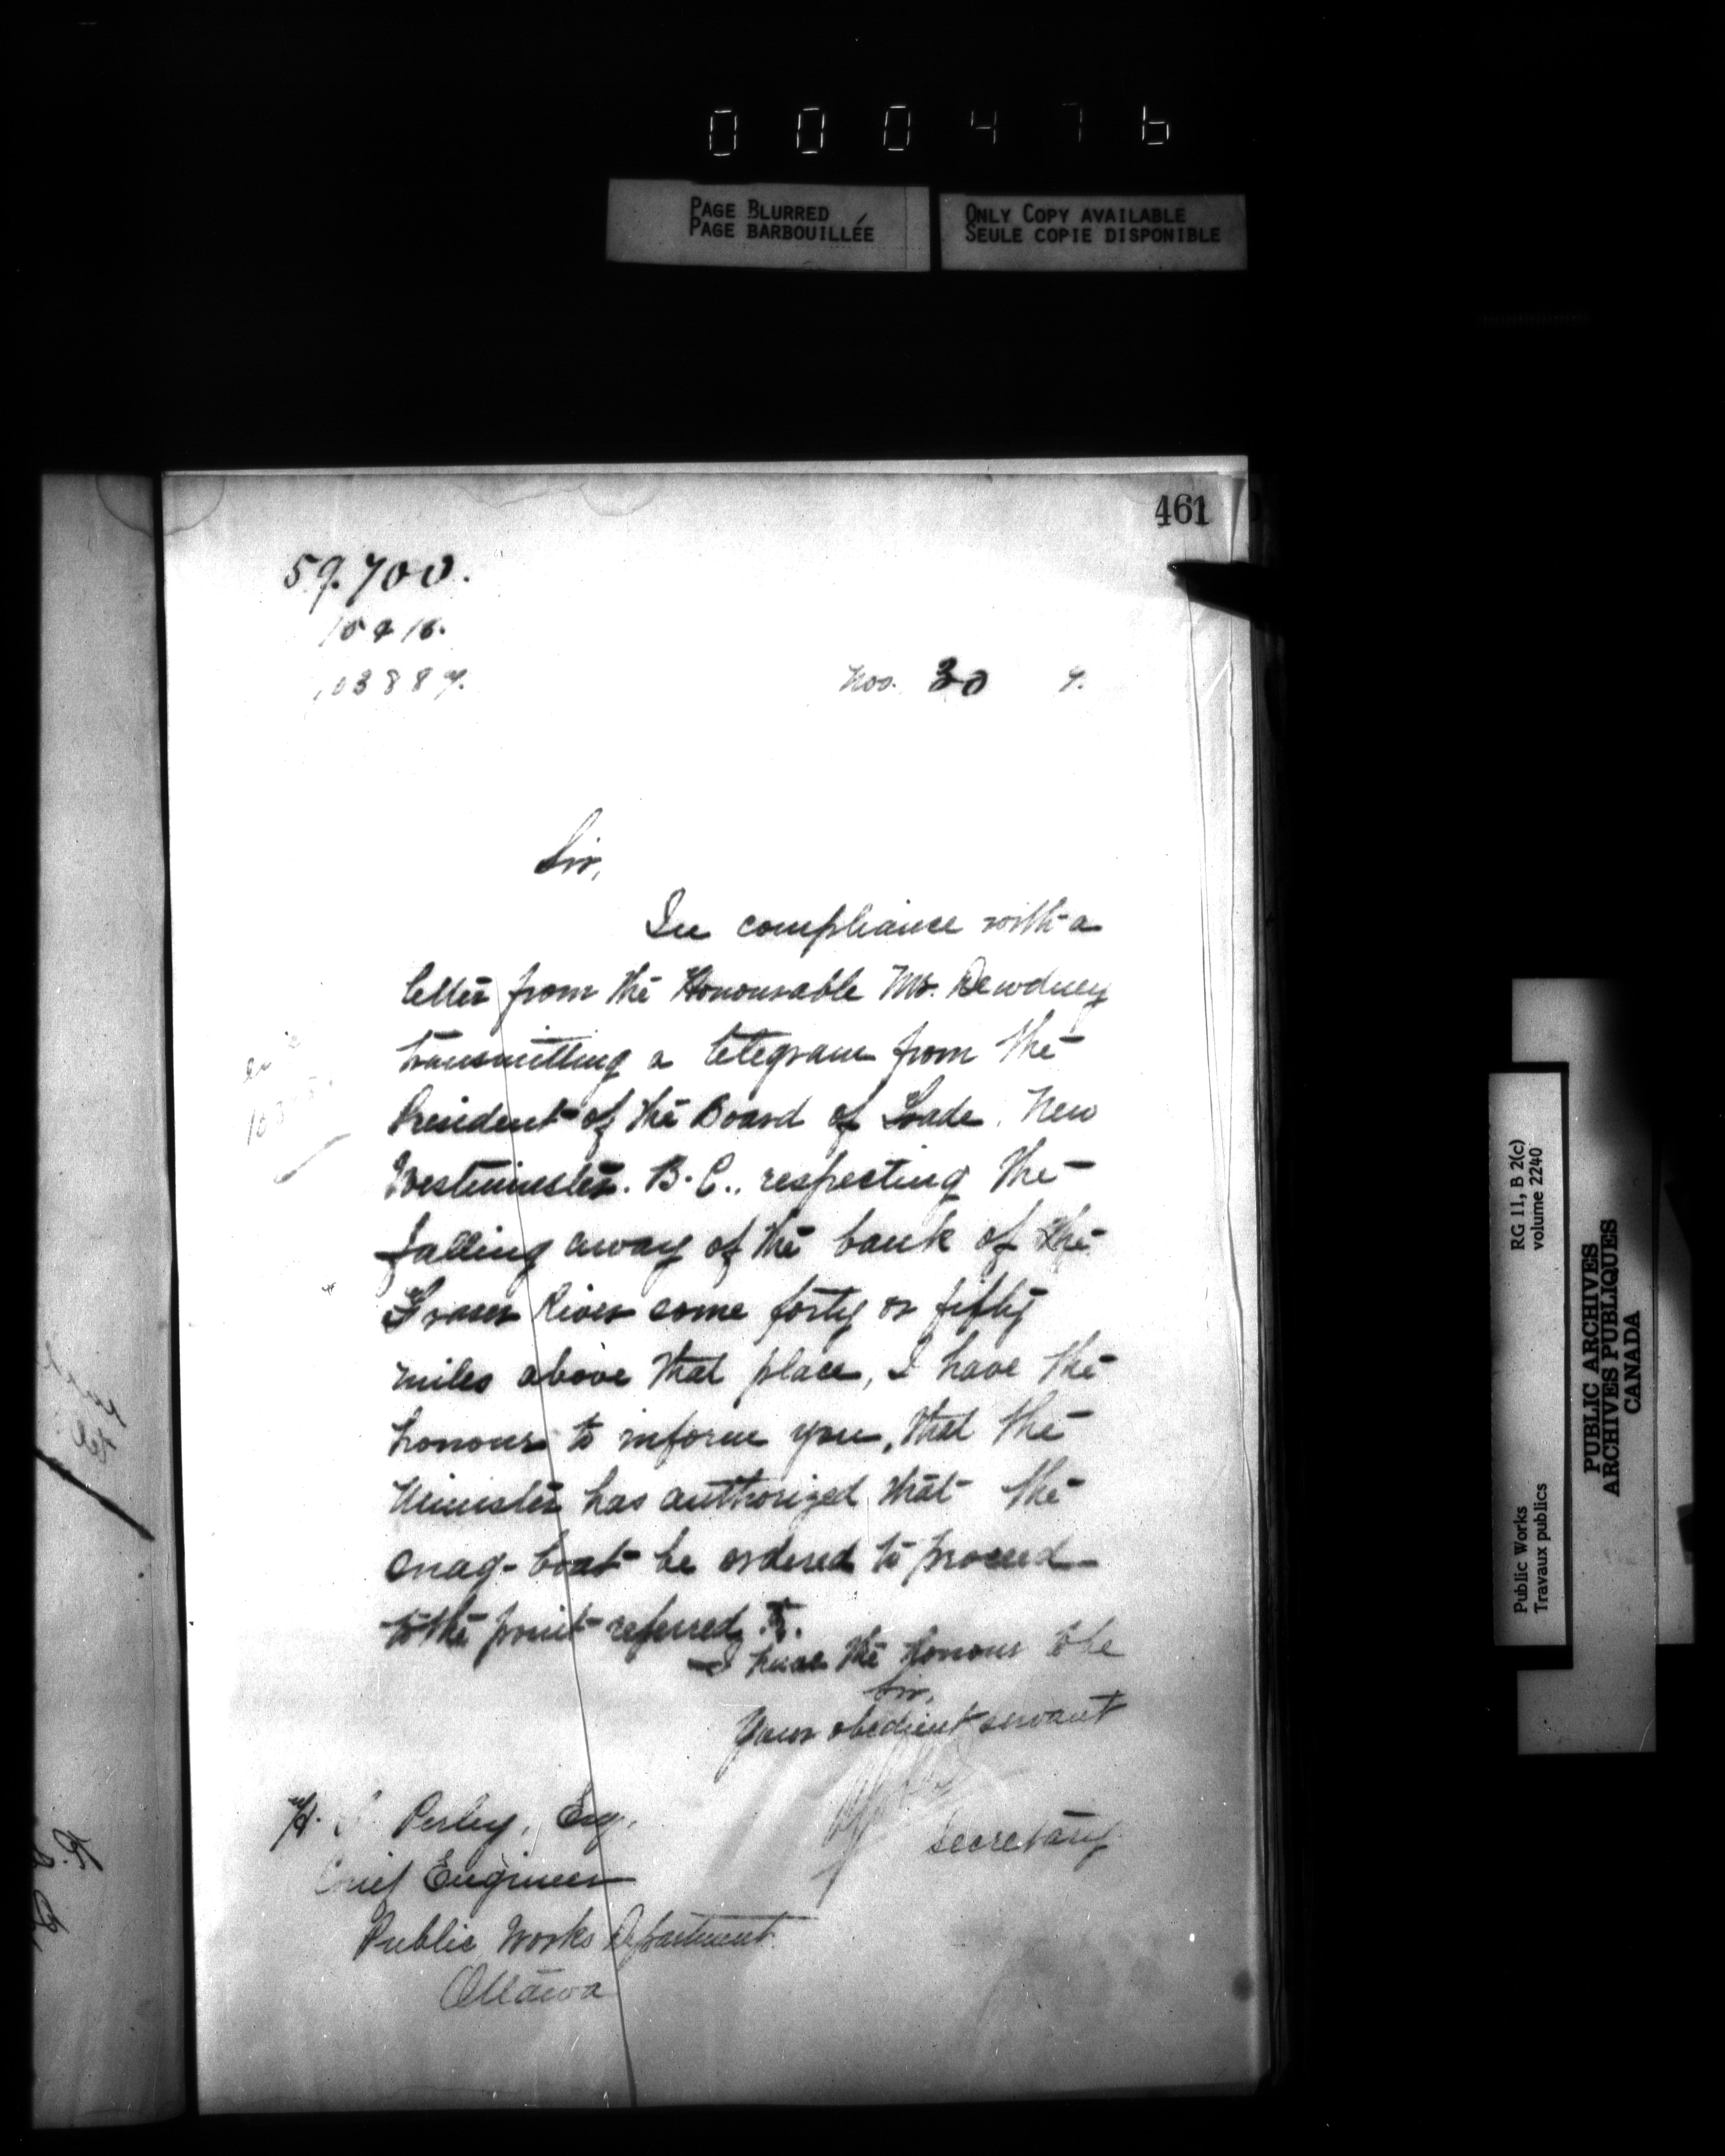 000476
PAGE BLURRED
PAGE BARBOUILLÉE
ONLY COPY AVAILABLE
SEULE COPIE DISPONIBLE
461
59.700.
103889.
Nov. 30 9.
Sir,
In compliance with a
letter from the Honourable Mr. Dewdney
transmitting a telegram from the
President of the Board of Trade, New
Westminster. B.C., respecting the
falling away of the bank of the
Fraser River some forty or fifty
miles above that place, I have the
honour to inform you, that the
Minister has authorized that the
snag-boat be ordered to proceed
to the point referred to.
I have the honour to be
Sir,
Your obedient servant
Secretary
H. Perley, Esq.
Chief Engineer
Public Works Department
Ottawa
RG 11, B 2(c)
volume 2240
Public Works
Travaux publics
PUBLIC ARCHIVES
ARCHIVES PUBLIQUES
CANADA